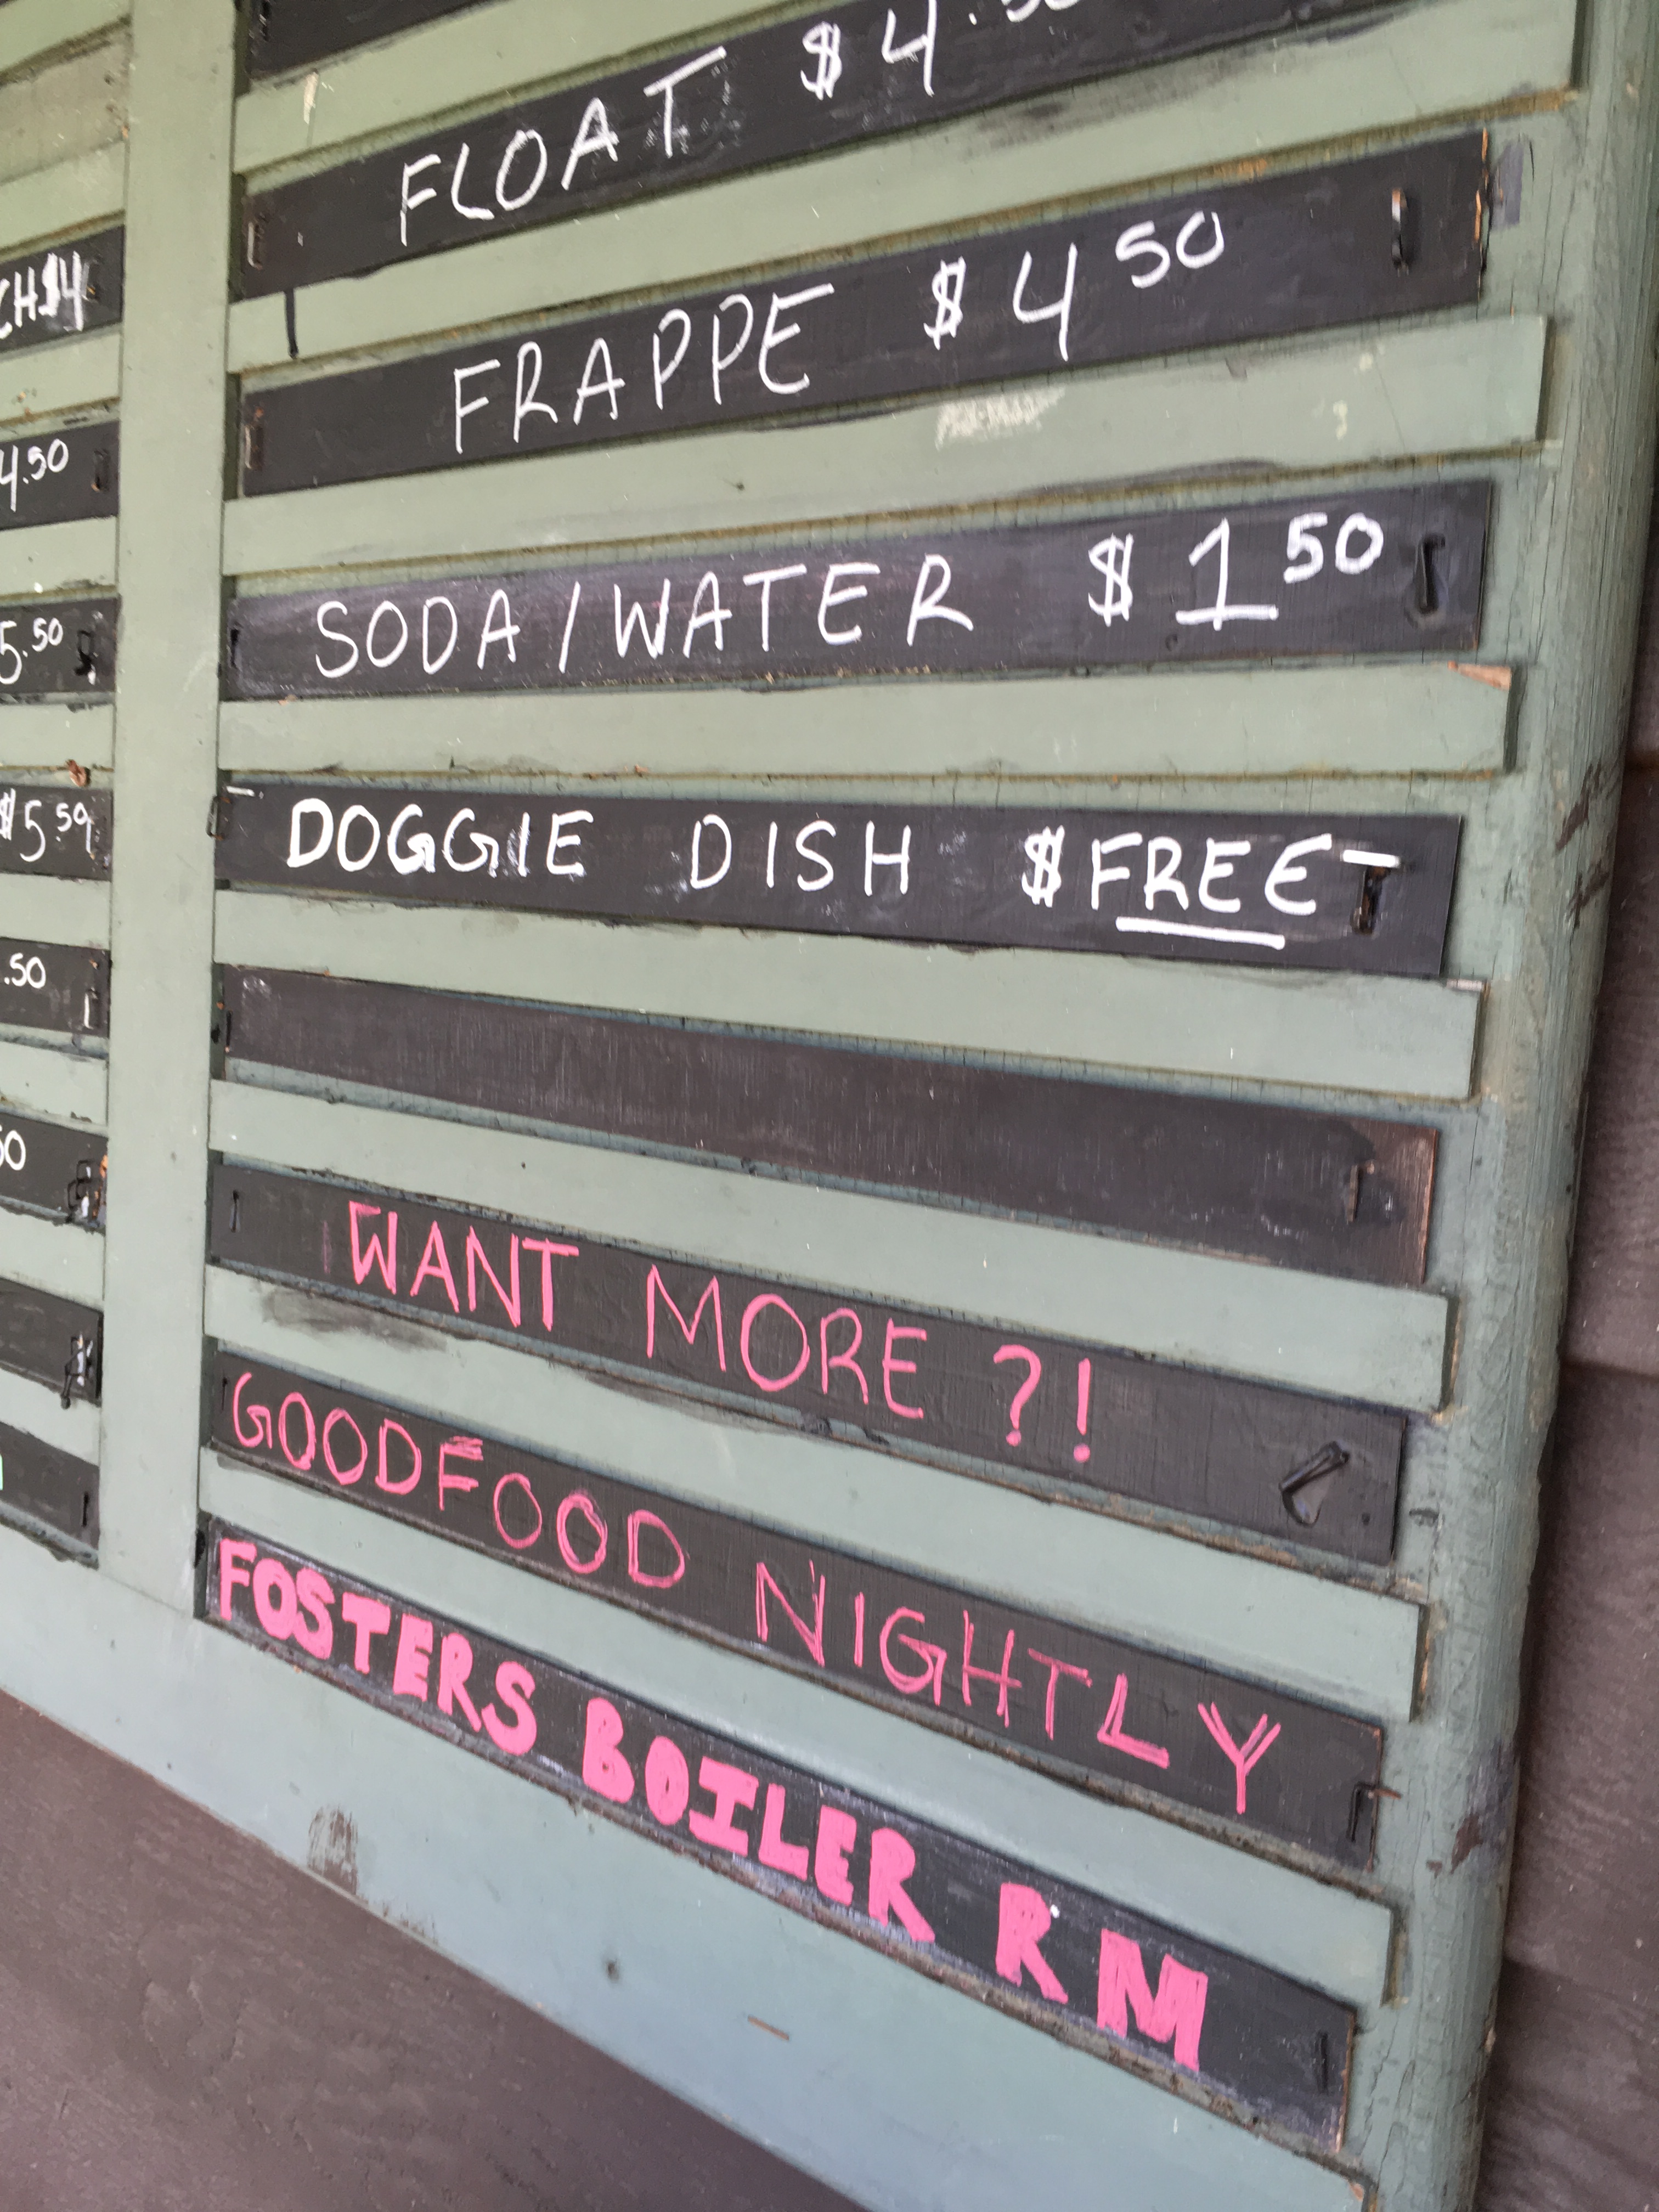 CH $4
4.50
5.50
$5.50
.50
50
FLOAT $4.50
FRAPPE $4 50
SODA/WATER $1 50
DOGGIE DISH $FREE
WANT MORE?!
GOODFOOD NIGHTLY
FOSTERS BOILER RM